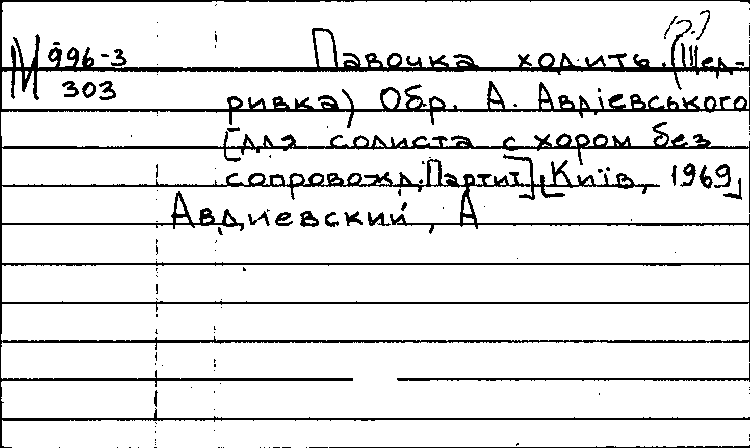 М 996-3
303
Павочка ходить. (Щед-
ривка) Обр. А. Авдієвського
[для солиста с хором без
сопровожд. Партит] [Київ, 1969]
Авдиевский, А